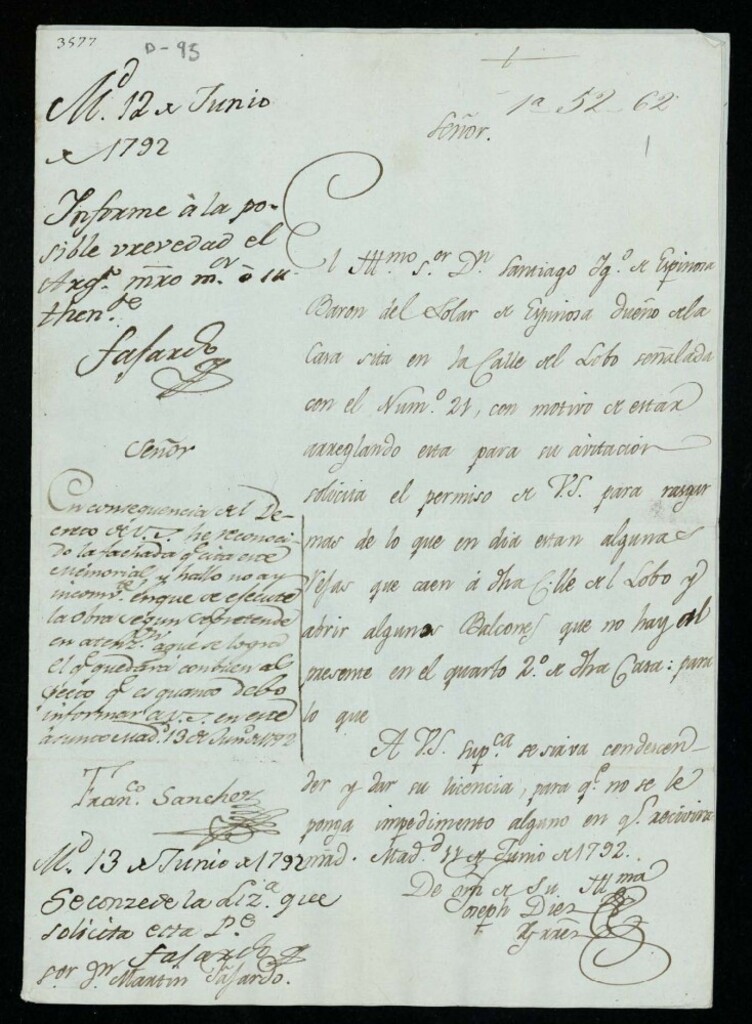 3577
D-95
+
1ª 52-62
1
Señor.
Md. 12 de Junio
de 1792
Informe à la po-
sible vrevedad el
Arqe. mro mor. ò su
thente.
Fafardo
Señor
En consequencia del De-
creto de V.S. he reconoci-
do la fachada q cita este
Memorial, y hallo no ay
incombte. en que se efectue
la obra segun se pretende
en atenzon. a que se logra
el q quedará con buen as-
pecto q es quanto debo
informar a V.S. en este
asunto Madd. 13 de Junio de 1792
Franco. Sanchez
Md. 13 de Junio de 1792
Se conzede la liza. que
solicita esta Pe.
Fafardo
sor. Dn. Martin Fafardo.
El Illmo sor. Dn. Santiago Igo. de Espinosa
Baron del Solar de Espinosa dueño de la
Casa sita en la Calle del Lobo señalada
con el Numo. 21, con motivo de estar
arreglando esta para su avitacion
solicita el permiso de V.S. para rasgar
mas de lo que en dia estan algunas
Rejas que caen á dha Calle del Lobo y
abrir algunos Balcones que no hay al
presente en el quarto 2º. de dha Casa: para
lo que
A V.S. suppca. se sirva condescen-
der y dar su licencia, para qe. no se le
ponga impedimento alguno en qe. recivirá
mrd. Madd. 11 de Junio de 1792.
De orn de Su Illma
Joseph Diez